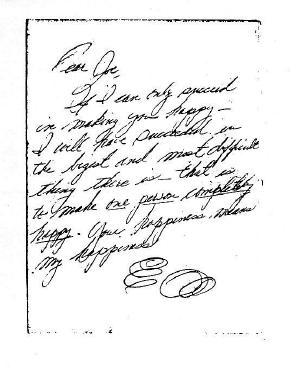 Dear Joe,
If I can only succeed
in making you happy –
I will have succeeded in
the bigest and most difficult
thing there is – that is
to make one person completely
happy. Your happiness means
my happiness